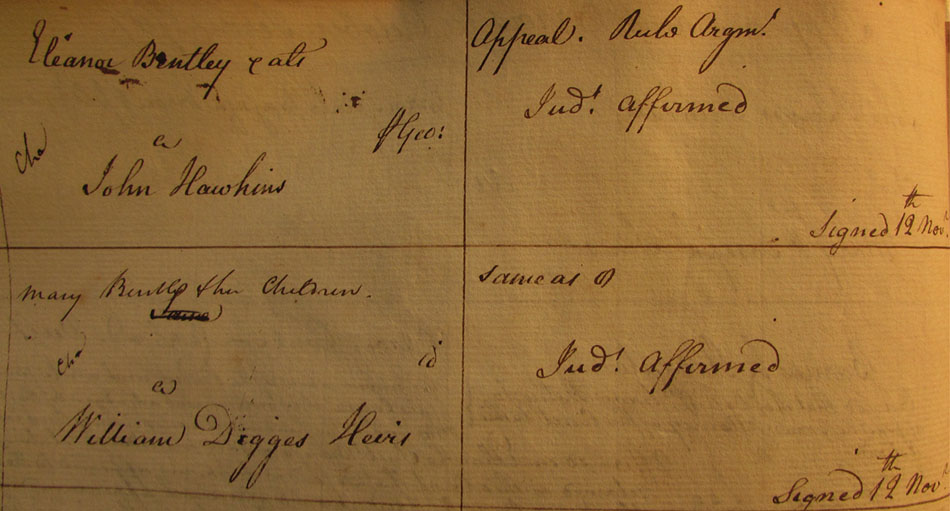 Eleanor Bentley & als
Cha
a
John Hawkins
Pr Geo:
Appeal. Rule Argmt.
Judt. Affirmed
Signed 12th Nov.
Mary Bently & her Children.
Cha
a
id
William Digges Heirs
Same as
Judt. Affirmed
Signed 12th Nov.